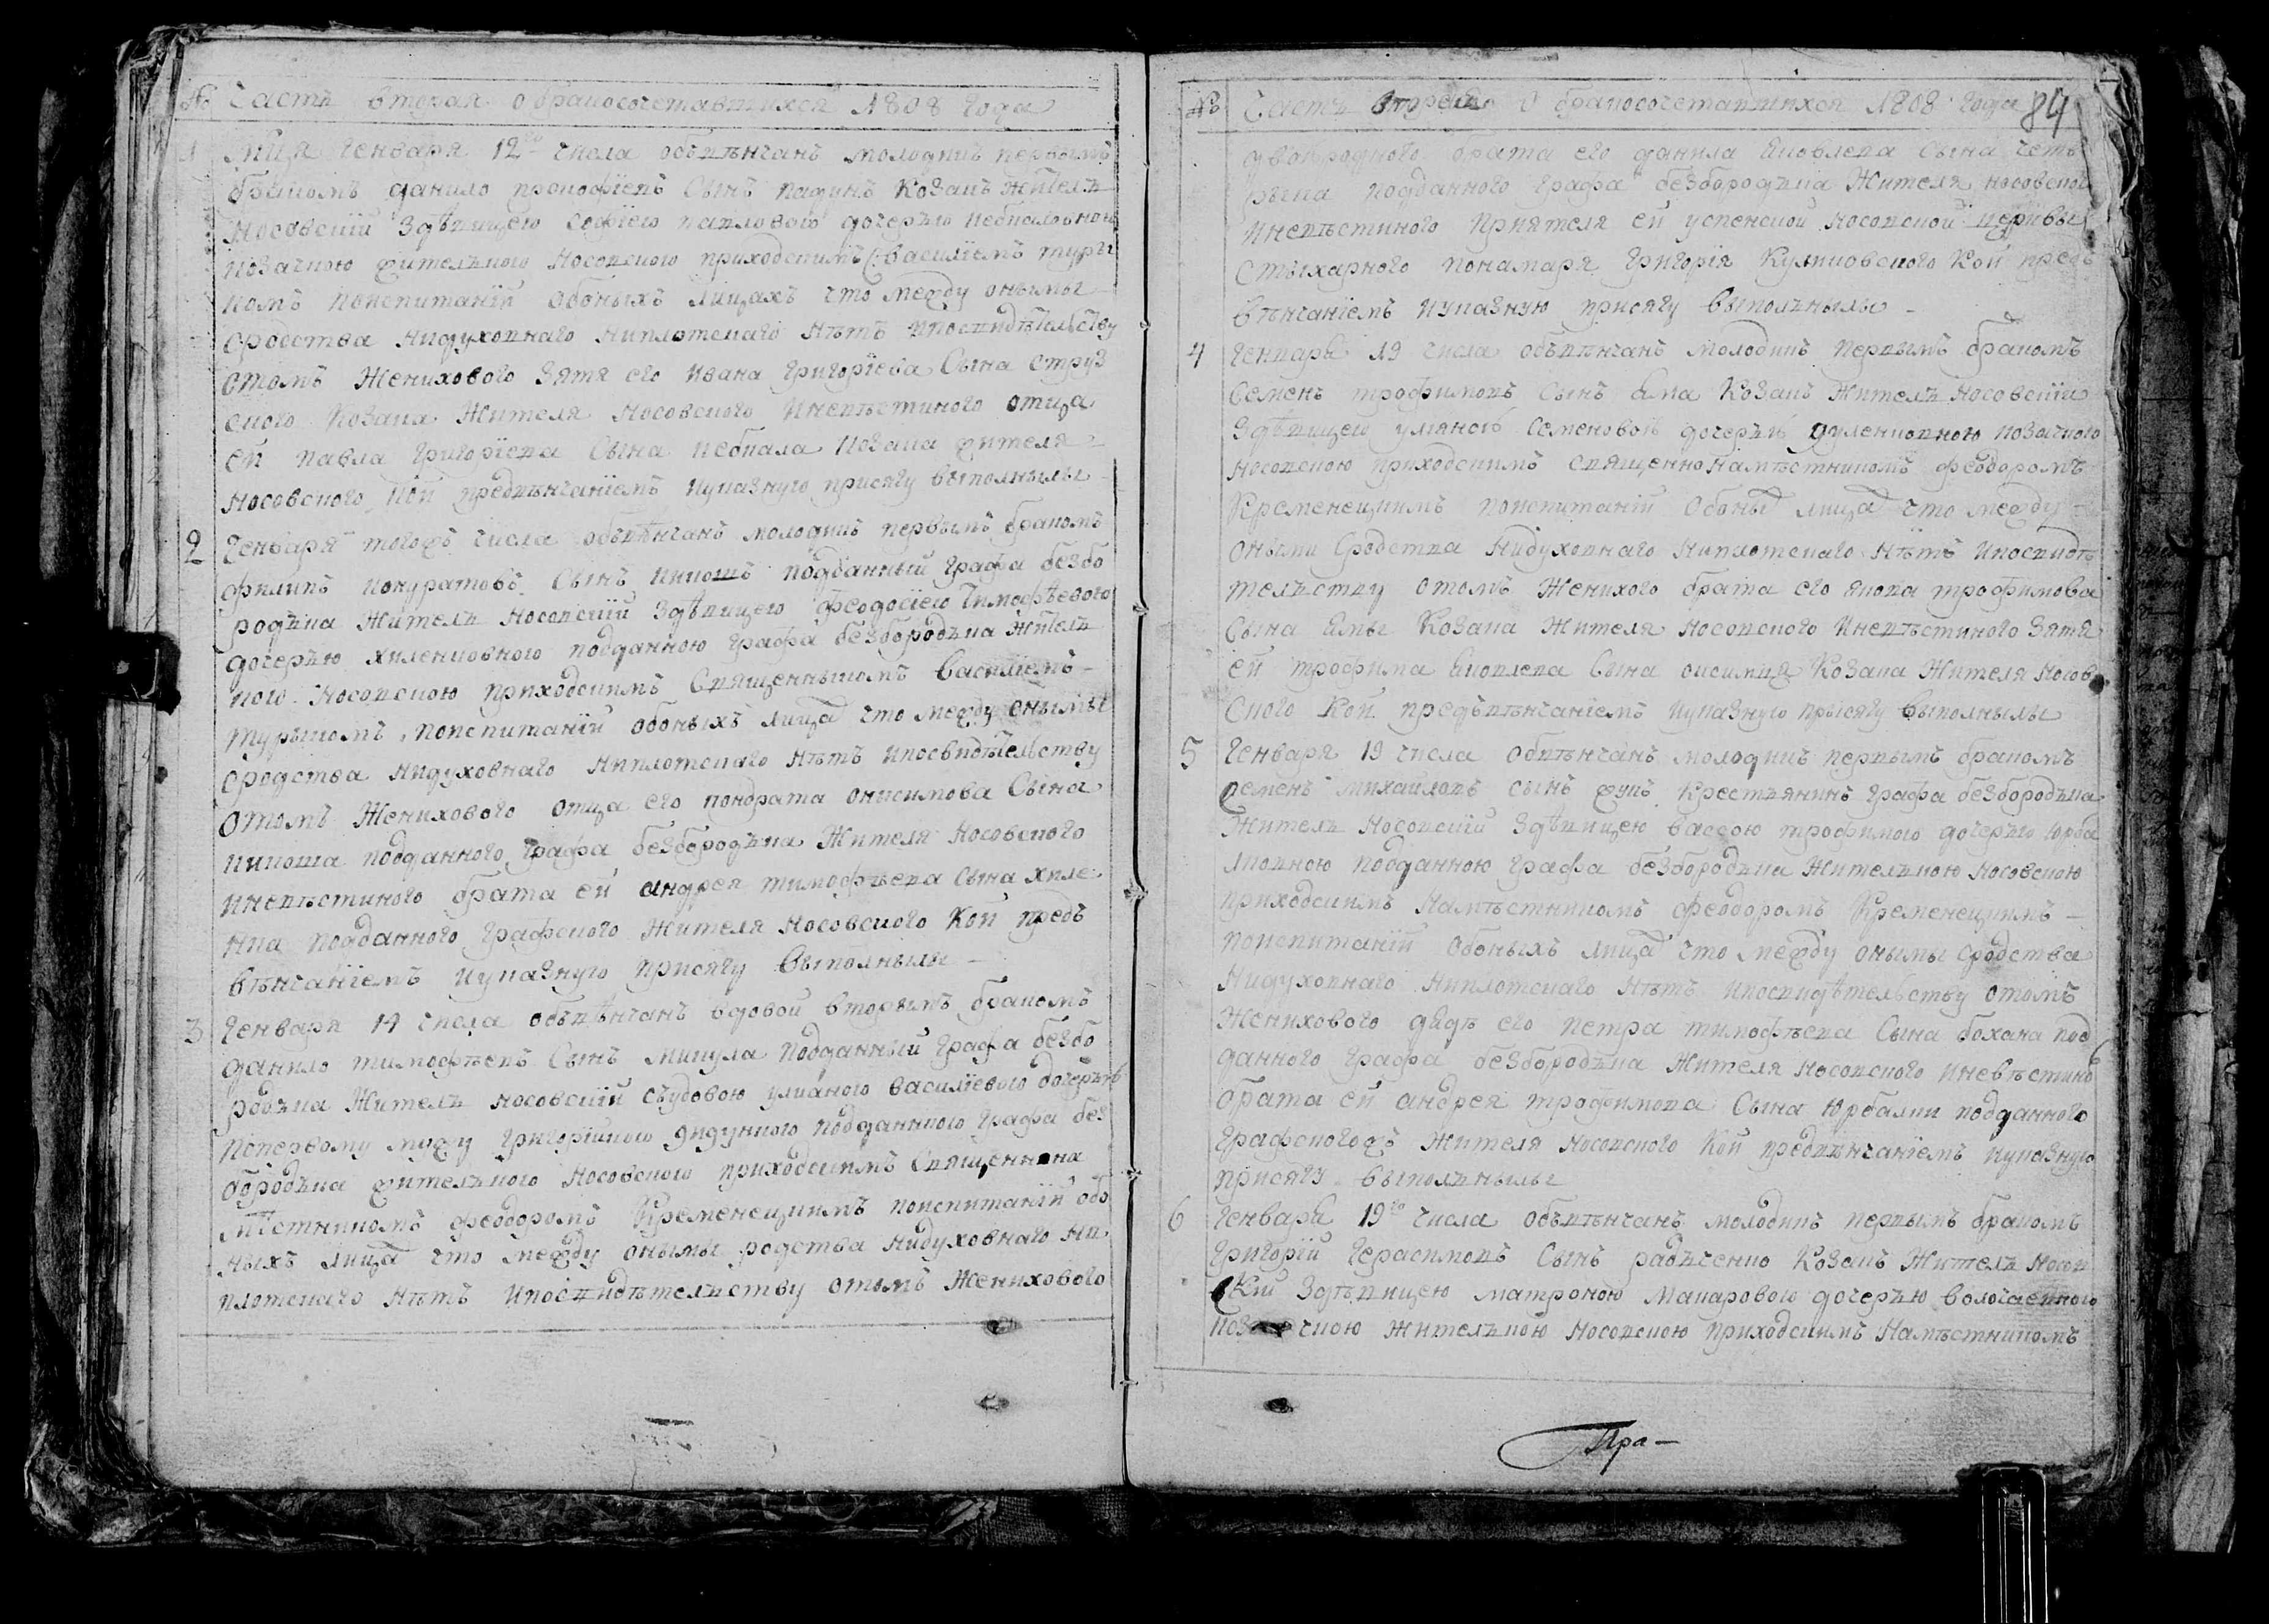 № Часть вторая о бракосочетавшихся 1808 года
1 Мця Генваря 12го числа обвѣнчанъ молодикъ первымъ
бракомъ данило прокофіевъ Сынъ козакъ жителъ
Носовскій Здѣвицею софіею павловою дочерью
козачкою жителькою Носовскою приходскимъ василіемъ туры
комъ поиспитаніи обоныхъ лицахъ что между онымы
сродства нидуховнаго ниплотскаго Нѣтъ ипосвидѣтельству
отомъ Женихового зятя его ивана григоріева Сына струз
ского козака Жителя Носовского Иневѣстиного отца
ей павла григоріева Сына козака жителя
Носовского Кои предвѣнчаніемъ иуказную присягу выполнылы
2 Генваря тогожъ числа обвѣнчанъ молодикъ первымъ бракомъ
филипъ кондратовъ Сынъ подданный графа безбо
родька Жителъ Носовскій Здѣвицею феодосіею тимофѣевою
дочерью хиленковною подданною графа безбородька жителъ
кою Носовскою приходскимъ Священныкомъ василіемъ
турыкомъ поиспитаніи обоныхъ лица что между онымы
сродства нидуховнаго ниплотскаго Нѣтъ ипосвидѣтельству
отомъ Женихового отца его кондрата онисимова Сына
подданного графа безбородька Жителя Носовского
иневѣстиного брата ей андрея тимофѣева Сына хиле
нка подданного графского Жителя Носовского Кои предъ
вѣнчаніемъ иуказную присягу выполнылы
3 Генваря 14 числа обвѣнчанъ вдовой вторымъ бракомъ
данило тимофѣевъ Сынъ микула подданный графа безбо
родька Жителъ Носовскій съудовою уліяною василіевою дочерью
поперовому мужу григоріикою подданною графа без
бородька жителькою Носовскою приходскимъ Священнона
мѣстникомъ феодоромъ Кременецкимъ поиспитаніи обо
ныхъ лица что между онымы родства нидуховнаго ни
плотскаго Нѣтъ ипосвидѣтельству отомъ Женихового
№ Часть вторая о бракосочетавшихся 1808 года 84
двоюродного брата его данила яковлева Сына четь
рыка подданного графа безбородька Жителя носовского
иневѣстиного приятеля ей успенской носовской церквы
стыхарного понамаря григорія Куликовского Кои предъ
вѣнчаніемъ иуказную присягу выполнылы
4 Генваря 19 числа обвѣнчанъ молодикъ первымъ бракомъ
семенъ трофимовъ сынъ Яма козакъ Жителъ Носовскій
Здѣвицею уляною Семеновою дочерью козачкою
носовскою приходскимъ священнонамѣстникомъ феодоромъ
Кременецкимъ поиспитаніи обоныхъ лица что между
онымы сродства нидуховнаго ниплотскаго Нѣтъ ипосвидѣ
телъству отомъ Женихого брата его якова трофимова
сына Ямы Козака Жителя Носовского Иневѣстиного зятя
ей трофима яковлева Сына Козака Жителя Носов
ского Кои предъвѣнчаніемъ иуказную присягу выполнылы
5 Генваря 19 числа обвѣнчанъ молодикъ первымъ бракомъ
семенъ михаиловъ сынъ Крестьянинъ графа безбородька
Жителъ Носовскій Здѣвицею вассою трофимою дочерью юрба
лювною подданною графа безбородька Жителькою Носовскою
приходскимъ Намѣстникомъ феодоромъ Кременецкимъ
поиспитаніи обоныхъ лица что между онымы сродства
нидуховнаго ниплотскаго Нѣтъ ипосвидѣтельству отомъ
Женихового дядъ его петра тимофѣева Сына бохана под
данного графа безбородька Жителя Носовского иневѣстино
брата ей андрея трофимова Сына юрбалки подданного
графскогожъ Жителя Носовского Кои предвѣнчаніемъ иуказную
присягу выполнылы
6 Генваря 19го числа обвѣнчанъ молодикъ первымъ бракомъ
Григорій Герасимовъ Сынъ радченко Козакъ Жителъ Носов
скій Здѣвицею матроною макаровою дочерью
козачкою жителькою Носовскою приходскимъ Намѣстникомъ